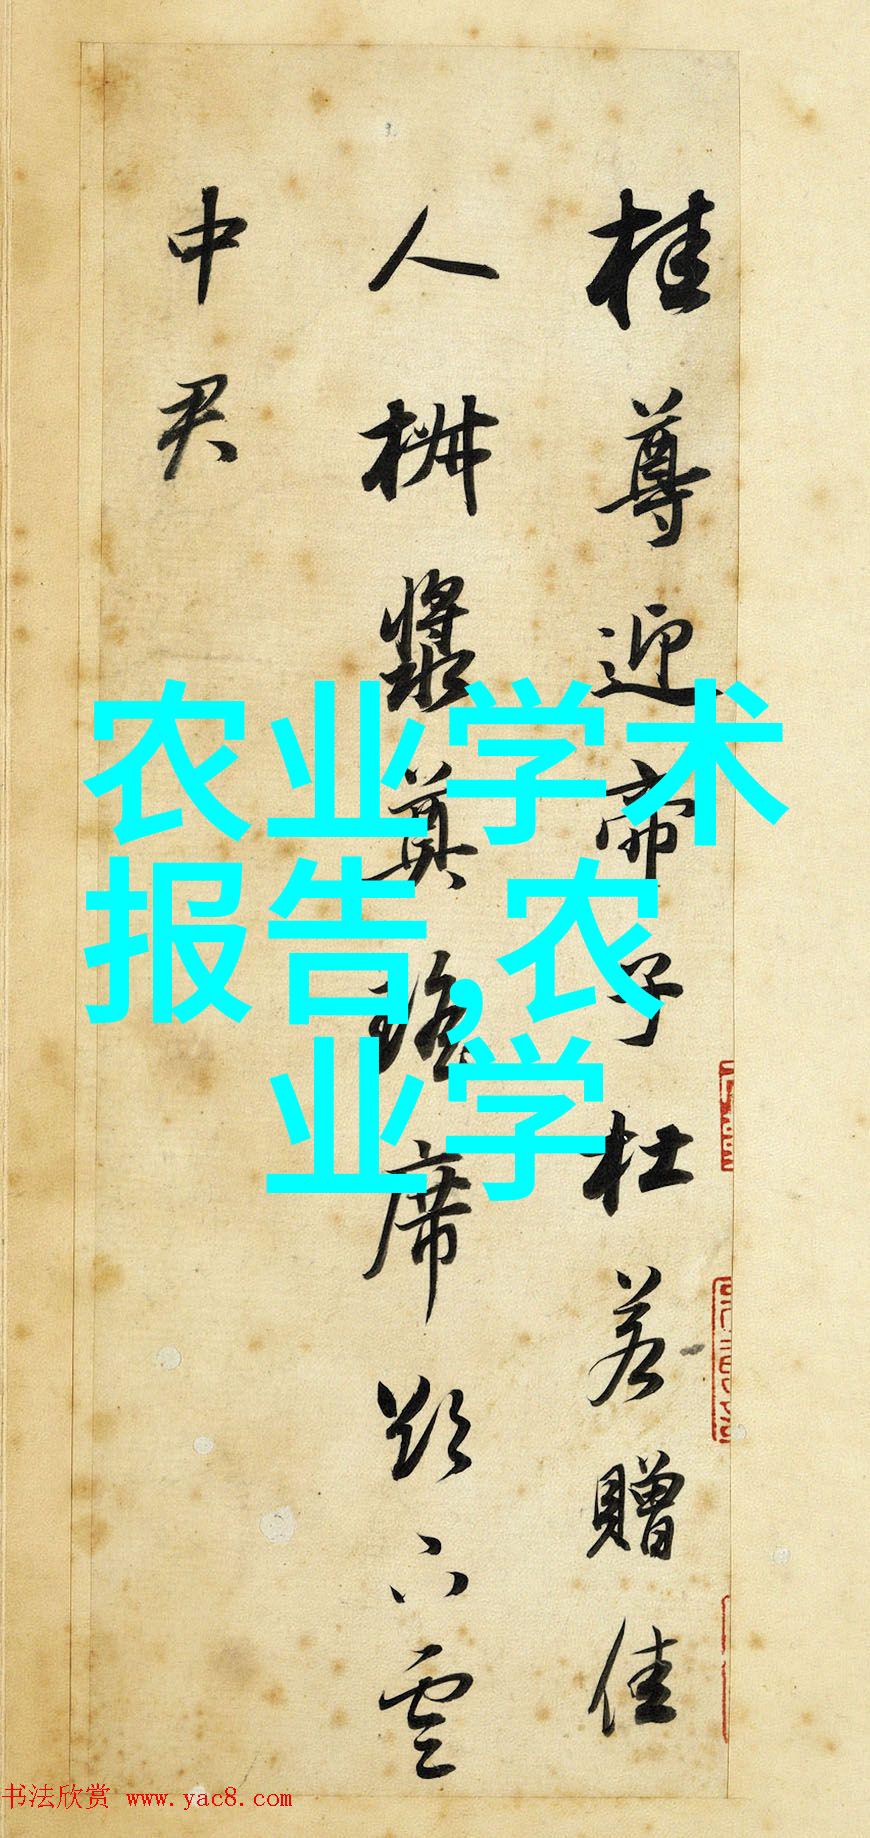 桂尊迎帝子杜若赠佳
人椒漿奠瑤席欲下雲
中君
农业学术
报告,农
业学
书法欣赏 www.yac8.com